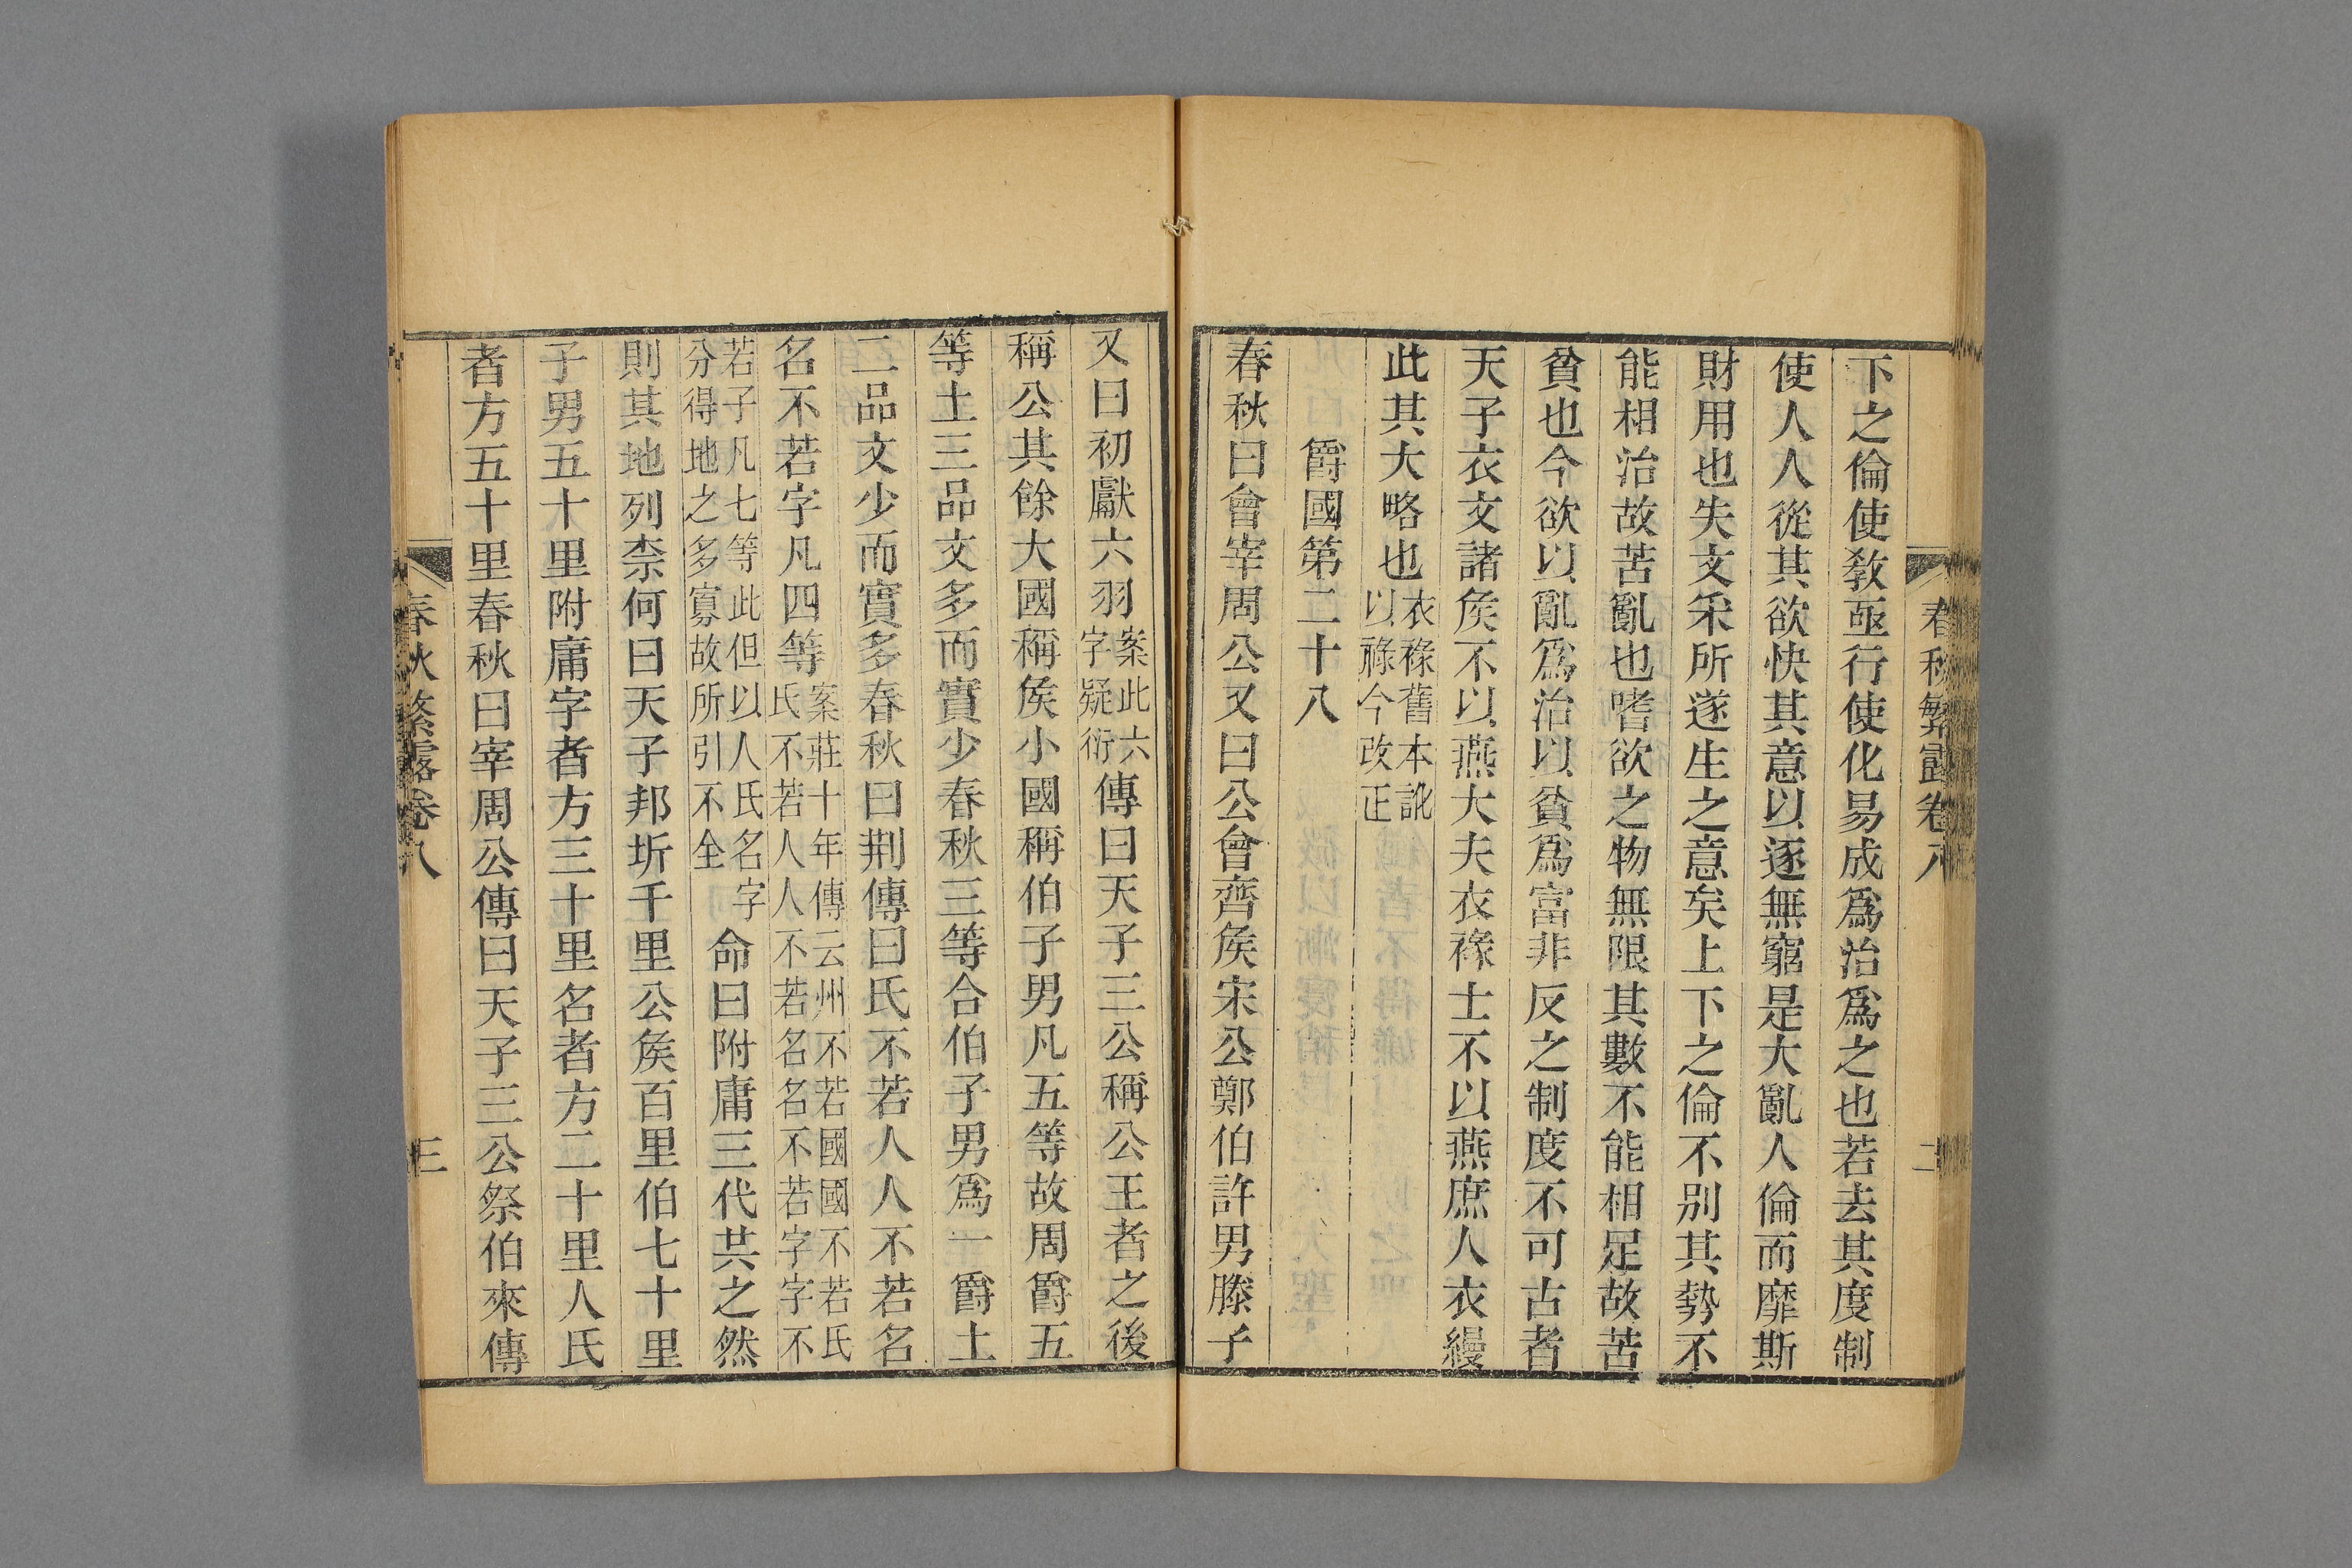 春秋繁露卷八
二
下之倫使敎亟行使化易成爲治爲之也若去其度制
使人人從其欲快其意以逐無窮是大亂人倫而靡斯
財用也失文采所遂生之意矣上下之倫不别其勢不
能相治故苦亂也嗜欲之物無限其數不能相足故苦
貧也今欲以亂爲治以貧爲富非反之制度不可古者
天子衣文諸矦不以燕大夫衣褖士不以燕庶人衣縵
此其大略也
衣褖舊本訛
以祿今改正
爵國第二十八
春秋曰會宰周公又曰公會齊矦宋公鄭伯許男滕子
又曰初獻六羽
案此六
字疑衍
傳曰天子三公稱公王者之後
稱公其餘大國稱矦小國稱伯子男凡五等故周爵五
等土三品文多而實少春秋三等合伯子男爲一爵土
二品文少而實多春秋曰荆傳曰氏不若人人不若名
名不若字凡四等
案莊十年傳云州不若國國不若氏
氏不若人人不若名名不若字字不
若子凡七等此但以人氏名字
分得地之多寡故所引不全
命曰附庸三代共之然
則其地列柰何曰天子邦圻千里公矦百里伯七十里
子男五十里附庸字者方三十里名者方二十里人氏
者方五十里春秋曰宰周公傳曰天子三公祭伯來傳
春秋繁露卷八
三